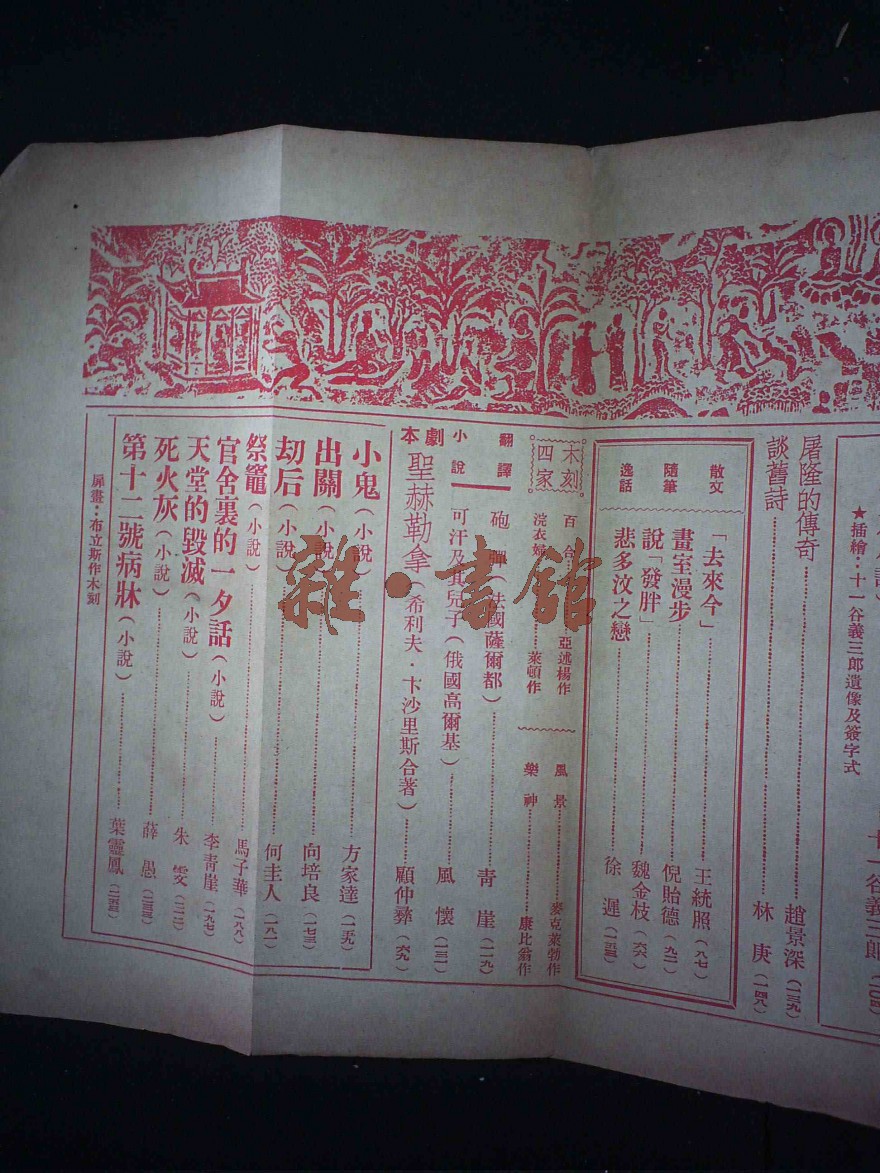 ★插繪·十一谷義三郎遺像及簽字式
十一谷義三郎
屠隆的傳奇……趙景深(一三九)
談舊詩……林庚(一四八)
散文
「去來今」……王統照(八七)
隨筆
畫室漫步……倪貽德(九二)
說「發胖」……魏金枝(六六)
逸話
悲多汶之戀……徐遲(一五三)
木刻四家
百合……亞述楊作
風景……麥克萊勃作
浣衣婦……萊頓作
樂神……康比翁作
翻譯
小說
砲彈(法國薩爾都)……青崖(一一九)
可汗及其兒子(俄國高爾基)……風懷(一三一)
劇本
聖赫勒拿(希利夫·卞沙里斯合著)……顧仲彝(六九)
小鬼(小說)……方家達(一五九)
出關(小說)……向培良(一七三)
劫后(小說)……何圭人(一八一)
祭籠(小說)……馬子華(一八八)
官舍裏的一夕話(小說)……李青崖(一九七)
天堂的毀滅(小說)……朱雯(二一二)
死火灰(小說)……薛愚(二三三)
第十二號病牀(小說)……葉靈鳳(二四三)
扉畫·布立斯作木刻
雜·書館